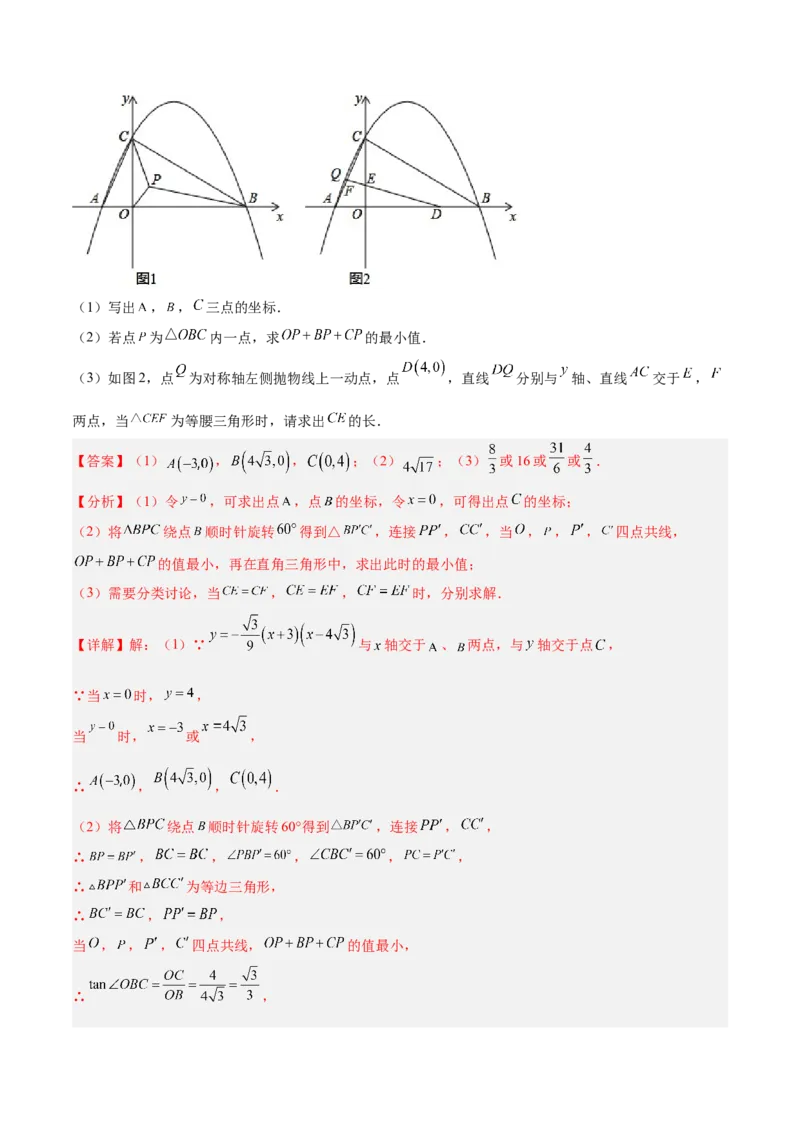 y y
C C
P Q E
F
A O B x A O D B x
图1 图2
（1）写出A，B，C三点的坐标．
（2）若点P为△OBC内一点，求OP+BP+CP的最小值．
（3）如图2，点Q为对称轴左侧抛物线上一动点，点D(4,0)，直线DQ分别与y轴、直线AC交于E，F
两点，当△CEF为等腰三角形时，请求出CE的长．
【答案】（1）A(−3,0)，B(4√3,0)，C(0,4)；（2）4√17；（3）8/3或16或31/6或4/3．
【分析】（1）令y−0，可求出点A，点B的坐标，令x=0，可得出点C的坐标；
（2）将△BPC绕点B顺时针旋转60°得到△BP′C′，连接PP′，CC′，当O，P，P′，C′四点共线，
OP+BP+CP的值最小，再在直角三角形中，求出此时的最小值；
（3）需要分类讨论，当CE=CF，CE=EF，CF=EF时，分别求解．
【详解】解：（1）∵y=−√3/9(x+3)(x−4√3)与x轴交于A、B两点，与y轴交于点C，
∵当x=0时，y=4，
当y−0时，x=−3或x=4√3，
∴A(−3,0)，B(4√3,0)，C(0,4)．
（2）将△BPC绕点B顺时针旋转60°得到△BP′C′，连接PP′，CC′，
∴BP=BP′，BC=BC，∠PBP′=60°，∠CBC′=60°，PC=P′C′，
∴△BPP′和△BCC′为等边三角形，
∴BC′=BC，PP′=BP，
当O，P，P′，C′四点共线，OP+BP+CP的值最小，
∴tan∠OBC=OC/OB=4/4√3=√3/3，